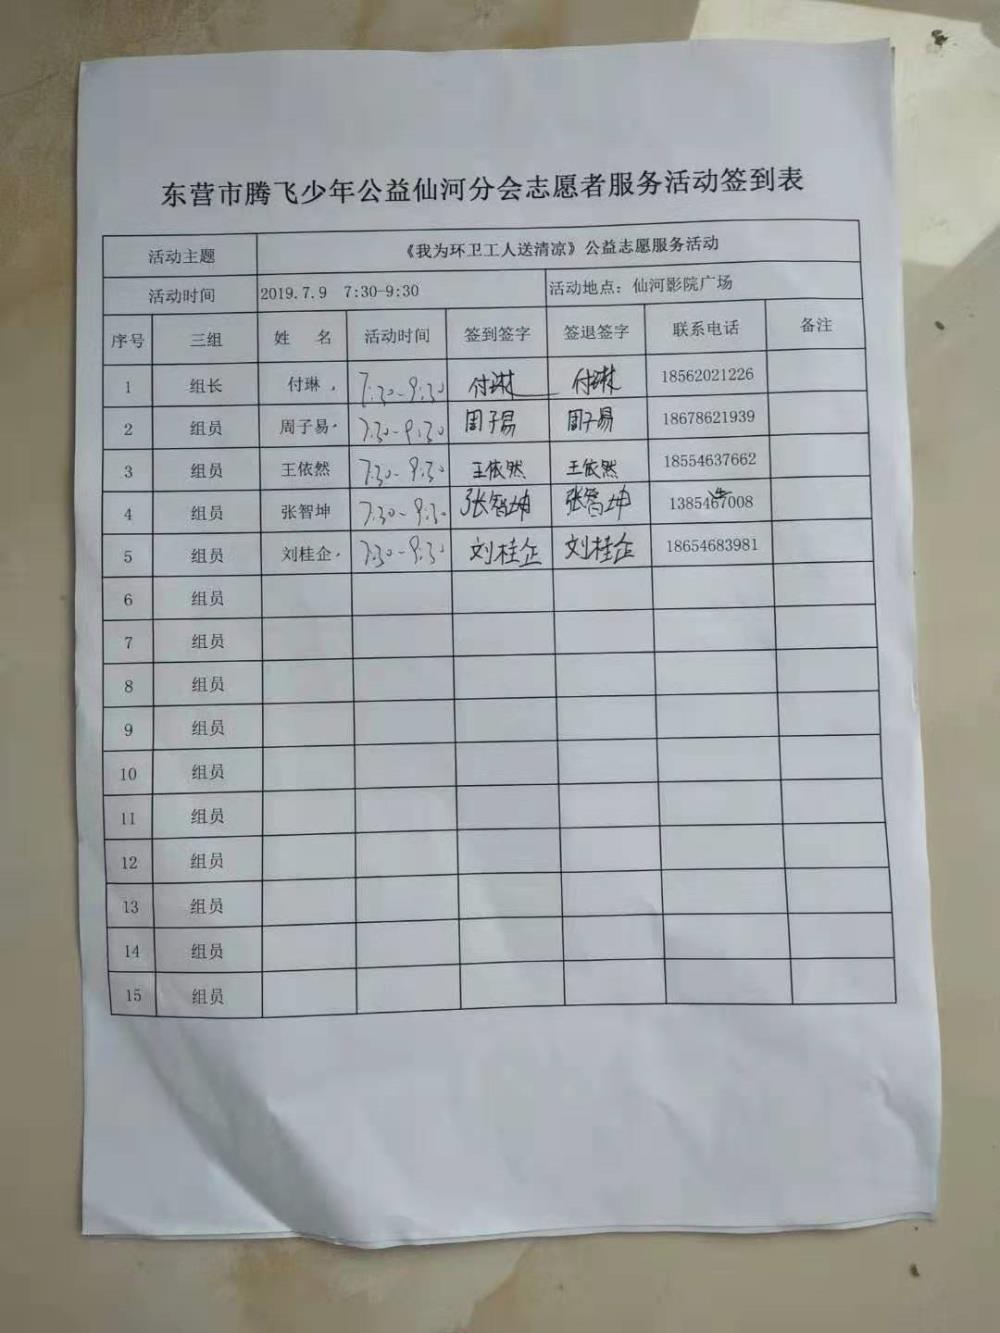 东营市腾飞少年公益仙河分会志愿者服务活动签到表
活动主题 《我为环卫工人送清凉》公益志愿服务活动
活动时间 2019.7.9 7:30-9:30 活动地点：仙河影院广场
序号 三组 姓 名 活动时间 签到签字 签退签字 联系电话 备注
1 组长 付琳 7:30-9:30 付琳 付琳 18562021226
2 组员 周子易 7:30-9:30 周子易 周子易 18678621939
3 组员 王依然 7:30-9:30 王依然 王依然 18554637662
4 组员 张智坤 7:30-9:30 张智坤 张智坤 1385467008
5 组员 刘桂企 7:30-9:30 刘桂企 刘桂企 18654683981
6 组员
7 组员
8 组员
9 组员
10 组员
11 组员
12 组员
13 组员
14 组员
15 组员